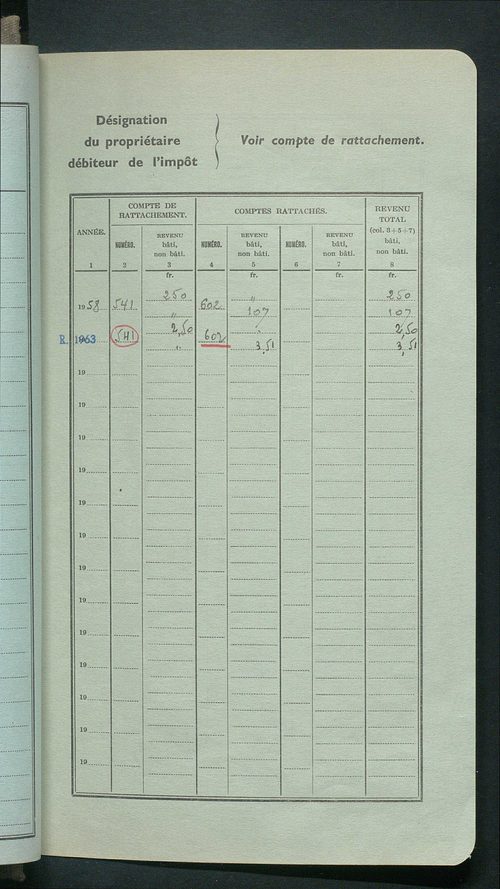 Désignation
du propriétaire
débiteur de l'impôt
Voir compte de rattachement.
ANNÉE.
COMPTE DE
RATTACHEMENT.
COMPTES RATTACHÉS.
REVENU
TOTAL
(col. 3+5+7)
bâti,
non bâti.
NUMÉRO.
REVENU
bâti,
non bâti.
NUMÉRO.
REVENU
bâti,
non bâti.
NUMÉRO.
REVENU
bâti,
non bâti.
1 2 3 4 5 6 7 8
fr. fr. fr. fr.
1958 541 250 602 " 250
" 107 107
R. 1963 541 2,50 602 " 2,50
" 3,51 3,51
19
19
19
19
19
19
19
19
19
19
19
19
19